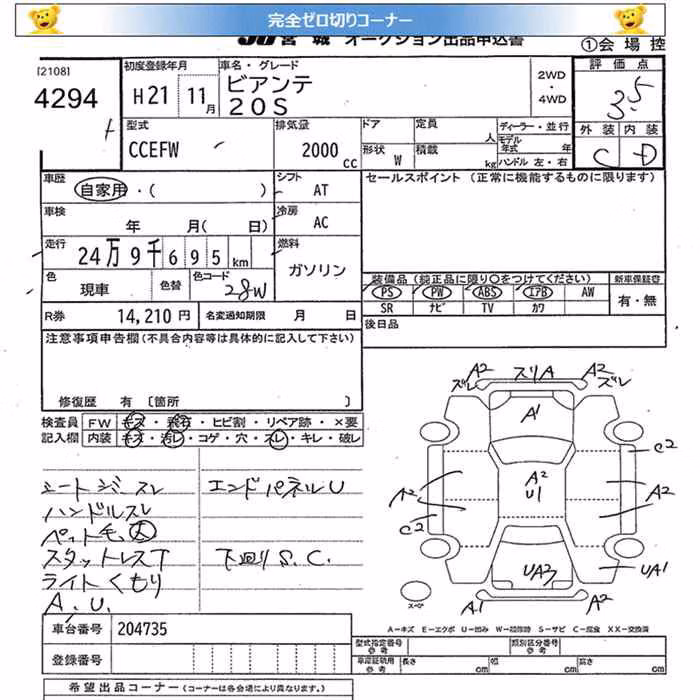 完全ゼロ切りコーナー
JU 宮城 オークション出品申込書 ①会場控
[2108]
4294
初度登録年月 H21 11月
車名・グレード ビアンテ 20S
2WD・4WD
評価点 3.5
外装 内装
C D
型式 CCEFW
排気量 2000cc
ドア 形状 W
定員 人
積載 kg
ディーラー・並行
モデル年式 年
ハンドル 左・右
車歴 自家用・( )
シフト AT
セールスポイント (正常に機能するものに限ります)
車検 年 月( 日)
冷房 AC
走行 24万9千695km
燃料 ガソリン
色 現車 色替 色コード 28W
装備品 (純正品に限り○をつけてください) 新車保証書
PS PW ABS エアB AW 有・無
SR ナビ TV カワ
R券 14,210円 名変通知期限 月 日
後日品
注意事項申告欄(不具合内容等は具体的に記入して下さい)
修復歴 有 〔箇所 〕
検査員 FW キズ・飛石・ヒビ割・リペア跡・×要
記入欄 内装 キズ・汚レ・コゲ・穴・スレ・キレ・破レ
シートシミスレ エンドパネルU
ハンドルスレ
ペット毛、大
スタットレスT 下廻りS.C.
ライトくもり
A.U.
A2 スリA A2
ズレ ズレ
A1
C2
A2 A2 A2
U1
C2
UA3 UA1
A1 A2
スペア
A-キズ E-エクボ U-凹み W-補修跡 S-サビ C-腐食 XX-交換済
車台番号 204735
登録番号
型式指定番号 参考 類別区分番号 参考
車庫証明用 参考 長さ cm 幅 cm 高さ cm
希望出品コーナー (コーナーは各会場により異なります。)